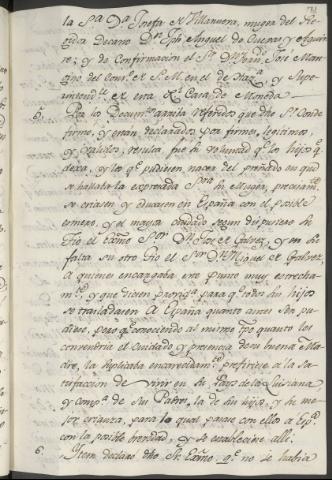 la S.ra D.a Josefa de Villanueva, muger del Re-
gidor Decano D.n Jph Angel de Cuevas y Aguir-
re; y de Confirmacion el S.or D.n Fern.do José Man-
gino del Cons.o de S.M. en el de Haz.a y Supe-
rintend.te de esta R.l Casa de Moneda.
5. Por los Docum.tos aquita referidos que dho S.or Conde
firmó, y estan declarados por firmes, legitimos,
y validos, resulta fué su voluntad q.e los hijos q.e
dexa, y los q.e pudiesen nacer del preñado en que
se hallaba la expresada S.ora su Muger, precisam.te
se criasen y educasen en España con el posible
esmero, y el mayor cuidado segun dispusiere su
Tio el Exmo S.or D.n José de Galvez, y en su
falta su otro Tio el S.or D.n Miguel de Galvez,
A quienes encargaba este punto muy estrecha-
m.te, y que diesen provid.a para q.e todos sus hijos
se trasladasen A España quanto antes sea pu-
dieren, pero q.e conociendo al mismo tpo quanto les
convendria el Cuidado y presencia de su buena Ma-
dre, la suplicaba encarecidam.te prefiriese à la Sa-
tisfaccion de vivir en su Pays de la Luisiana
y comp.a de sus Padres, la de sus hijos, y su me-
jor crianza, para lo qual pasase con ellos a Esp.a
con la posible brevedad, y se estableciese alli.
6. Item declaró dho S.or Exmo. q.e no se habia